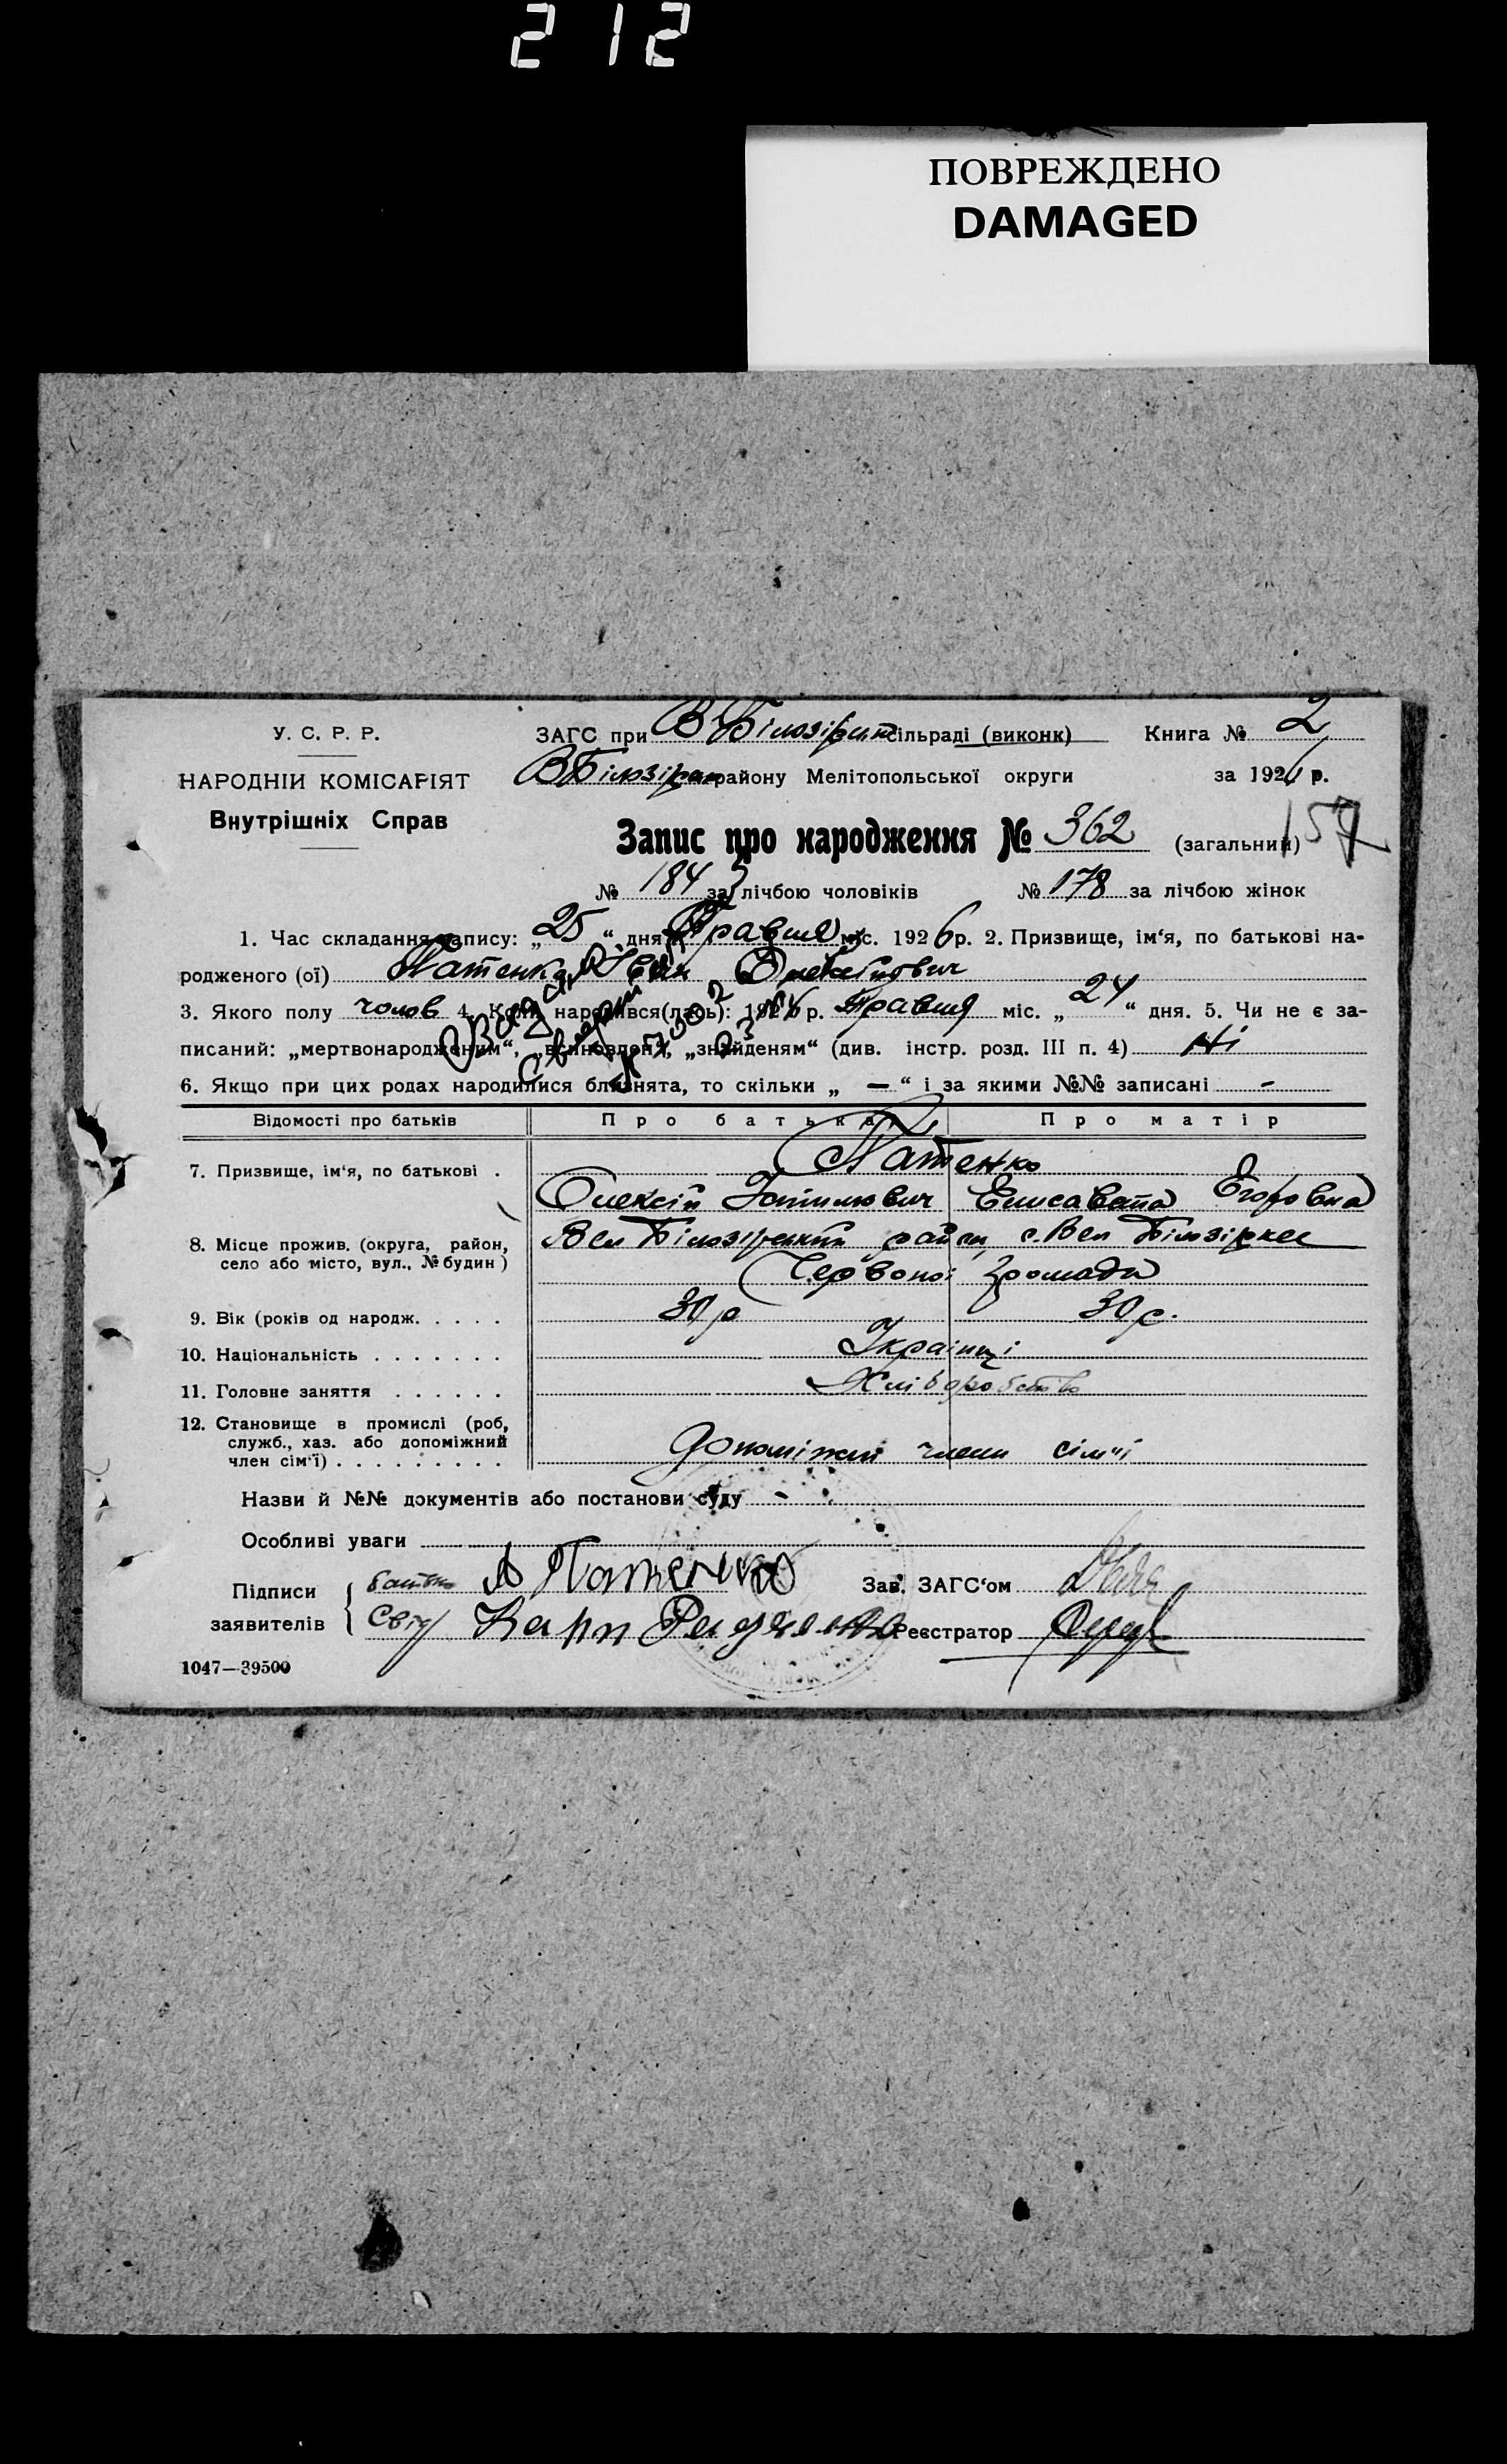 212
ПОВРЕЖДЕНО
DAMAGED
У. С. Р. Р.
НАРОДНІЙ КОМІСАРІЯТ
Внутрішніх Справ
ЗАГС при В Білозірськ сільраді (виконк)
В Білозірськ району Мелітопольської округи
Книга № 2
за 1926 р.
Запис про народження № 362 (загальний) 157
№ 184 за лічбою чоловіків № 178 за лічбою жінок
1. Час складання запису: „25“ дня Травня міс. 1926 р. 2. Призвище, ім‘я, по батькові на-
родженого (ої) Патенко Іван Олексійович
3. Якого полу чолов 4. Коли народився(лась): 1926 р. Травня міс. „24“ дня. 5. Чи не є за-
писаний: „мертвонародженим“, „ „знайденям“ (див. інстр. розд. III п. 4) Ні
6. Якщо при цих родах народилися близнята, то скільки „ — “ і за якими №№ записані -
Відомості про батьків Про батька Про матір
7. Призвище, ім‘я, по батькові . Патенко
Олексій Єлисавета Єгоровна
8. Місце прожив. (округа, район,
село або місто, вул., № будин)
Вел Білозірський район, с. Вел Білозірка
Червоної Громади
9. Вік (років од народж. . . . . 30 р 30 р.
10. Національність . . . . . . . Українці
11. Головне заняття . . . . . . Хліборобство
12. Становище в промислі (роб,
служб., хаз. або допоміжний
член сім‘ї) . . . . . . . . .
допоміжні члени сім"ї
Назви й №№ документів або постанови суду -
Особливі уваги
Підписи
заявителів
батько А Патенко
Свід Карп
Зав. ЗАГС‘ом
Реєстратор
1047—39500